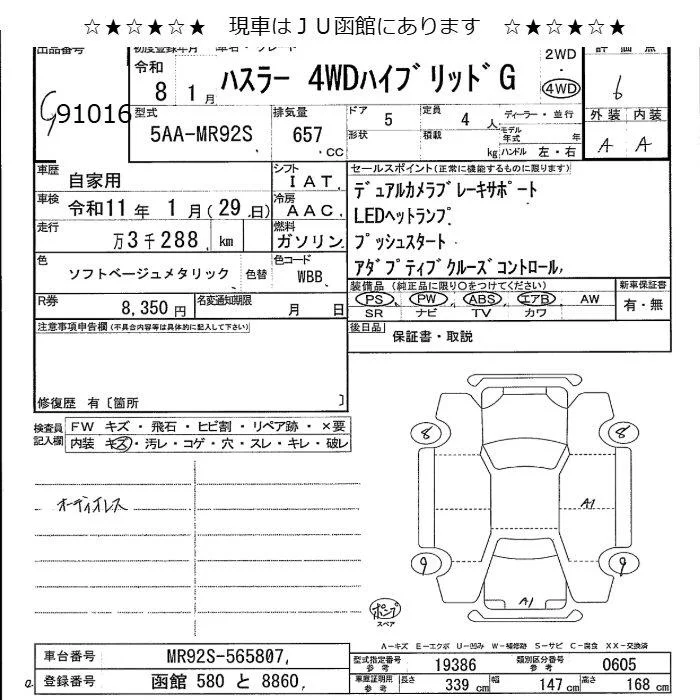 ☆★☆★☆★ 現車はＪＵ函館にあります ☆★☆★☆★
出品番号 初度登録年月 車名・グレード 評価点
91016
令和 8 1月
ハスラー 4WDハイブリッドG
2WD ・ 4WD
6
型式 5AA-MR92S
排気量 657 cc
ドア 5
定員 4 人
形状
積載 kg
ディーラー・並行
モデル年式 年
ハンドル 左・右
外装 内装
A A
車歴 自家用
シフト IAT
車検 令和11年 1月(29日)
冷房 AAC
走行 万3千288 km
燃料 ガソリン
色 ソフトベージュメタリック 色替
色コード WBB
R券 8,350円
名変通知期限 月 日
セールスポイント(正常に機能するものに限ります)
デュアルカメラブレーキサポート
LEDヘットランプ
プッシュスタート
アダプティブクルーズコントロール
装備品 (純正品に限り○をつけてください)
PS PW ABS エアB AW
SR ナビ TV カワ
新車保証書
有・無
後日品 保証書・取説
注意事項申告欄(不具合内容等は具体的に記入して下さい)
修復歴 有〔箇所 〕
検査員記入欄
FW キズ・飛石・ヒビ割・リペア跡・×要
内装 キズ・汚レ・コゲ・穴・スレ・キレ・破レ
オーディオレス
8 8
A1
9 9
A1
ポンプ
スペア
A-キズ E-エクボ U-凹み W-補修跡 S-サビ C-腐食 XX-交換済
車台番号 MR92S-565807
登録番号 函館 580 と 8860
型式指定番号 参考 19386
類別区分番号 参考 0605
車庫証明用 参考 長さ 339 cm 幅 147 cm 高さ 168 cm